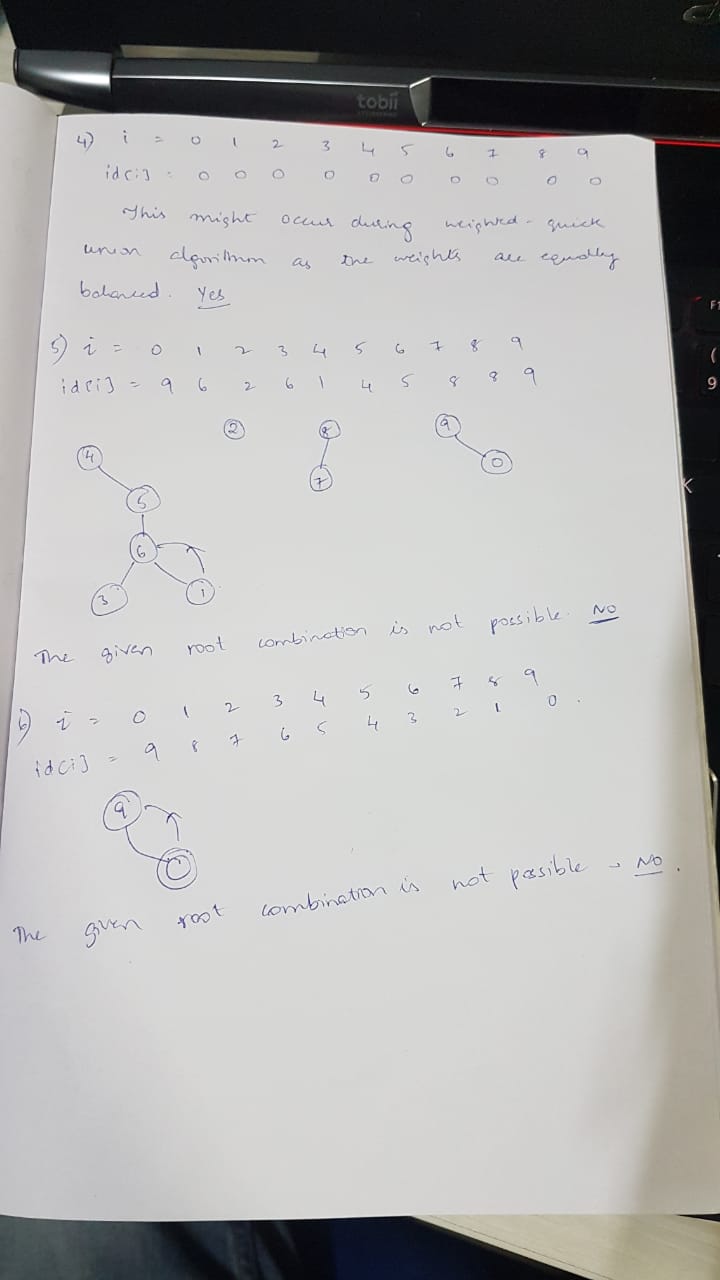 tobii
4) i = 0 1 2 3 4 5 6 7 8 9
id[i] = 0 0 0 0 0 0 0 0 0 0
This might occur during weighted - quick
union algorithm as the weights are equally
balanced. Yes
5) i = 0 1 2 3 4 5 6 7 8 9
id[i] = 9 6 2 6 1 4 5 8 8 9
2 8 9
4
7 0
5
6
3 1
The given root combination is not possible. NO
6) i = 0 1 2 3 4 5 6 7 8 9
id[i] = 9 8 7 6 5 4 3 2 1 0 .
9
0
The given root combination is not possible - NO.
9